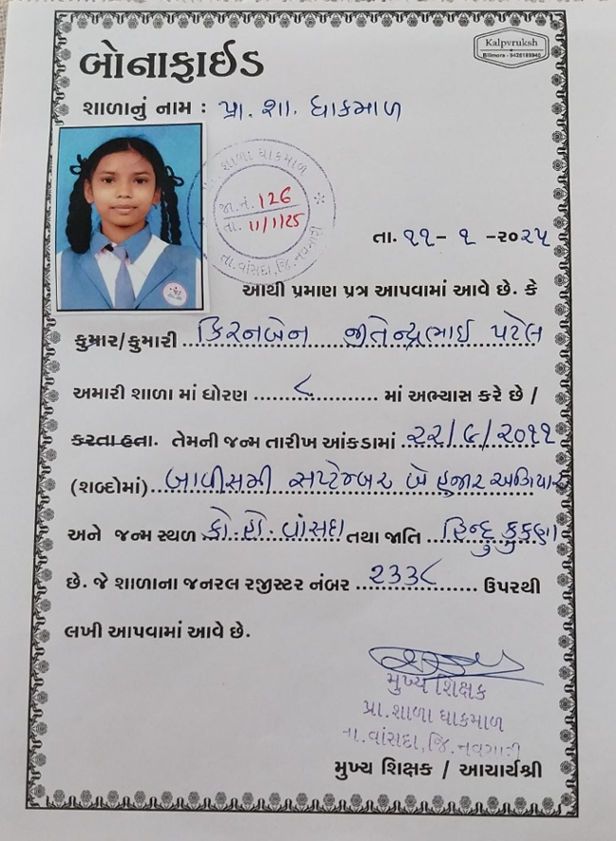 Kalpvruksh
Bilimora - 9426189840
બોનાફાઈડ
શાળાનું નામ : પ્રા. શા. ધાકમાળ
પ્રા. શાળા ધાકમાળ
જા.નં. 126
તા. 11/1/25
તા.વાંસદા, જિ.નવસારી
તા. ૧૧- ૧ -૨૦૨૫
આથી પ્રમાણ પત્ર આપવામાં આવે છે. કે
કુમાર/કુમારી કિરનબેન જીતેન્દ્રભાઈ પટેલ
અમારી શાળા માં ધોરણ ૮ માં અભ્યાસ કરે છે /
કરતા હતા. તેમની જન્મ તારીખ આંકડામાં ૨૨/૯/૨૦૧૧
(શબ્દોમાં) બાવીસમી સપ્ટેમ્બર બે હજાર અગિયાર
અને જન્મ સ્થળ કો. હો. વાંસદા તથા જાતિ હિન્દુ કુકણા
છે. જે શાળાના જનરલ રજીસ્ટર નંબર ૨૩૩૮ ઉપરથી
લખી આપવામાં આવે છે.
મુખ્ય શિક્ષક
પ્રા.શાળા ધાકમાળ
તા.વાંસદા,જિ.નવસારી
મુખ્ય શિક્ષક / આચાર્યશ્રી